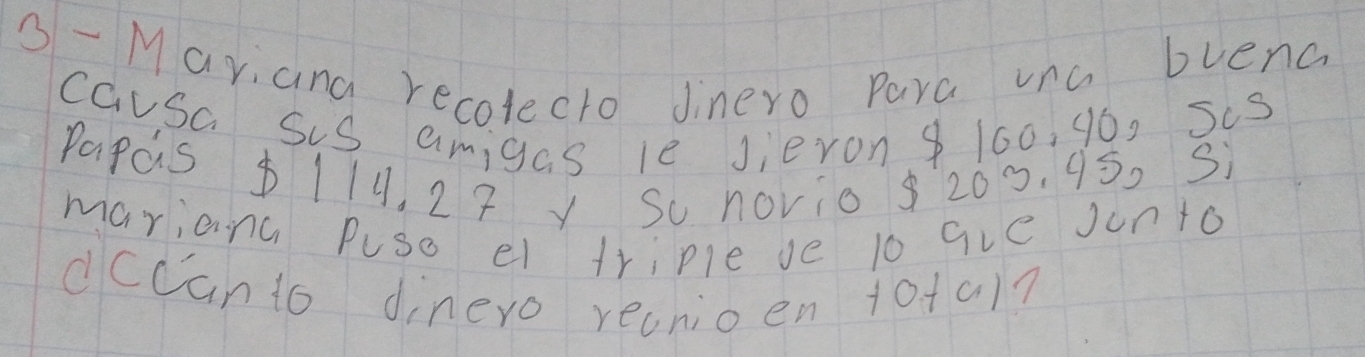 3-Mariana recolecto dinero para una buena
causa sus amigas le dieron $ 160.40, sus
Papás $ 114.27 y su novio $ 203.45, si
mariana puso el triple de lo que junto
¿Cuanto dinero reunio en total?